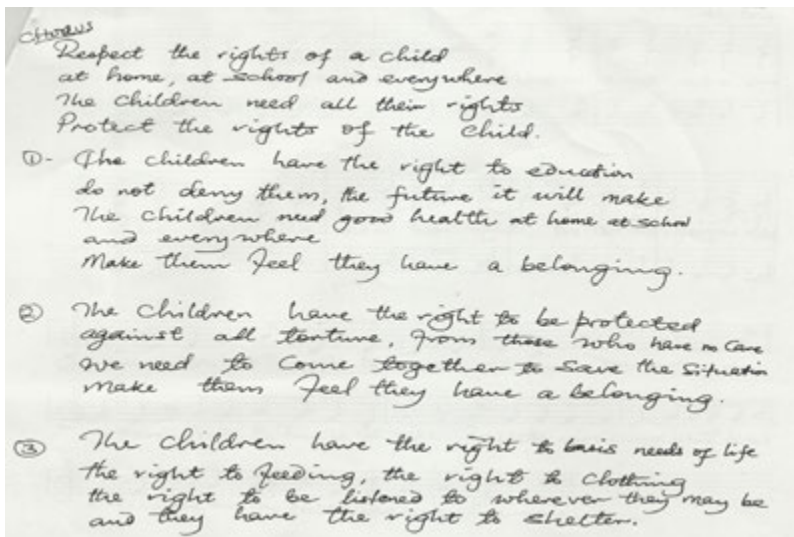 Chorus
Respect the rights of a child
at home, at school and everywhere
The children need all their rights
Protect the rights of the child.
①- The children have the right to education
do not deny them, the future it will make
The children need good health at home at school
and everywhere
Make them feel they have a belonging.
② The children have the right to be protected
against all torture, from those who have no care.
we need to come together to save the situation
make them feel they have a belonging.
③ The children have the right to basis needs of life
the right to feeding, the right to clothing
the right to be listened to wherever they may be
and they have the right to shelter.